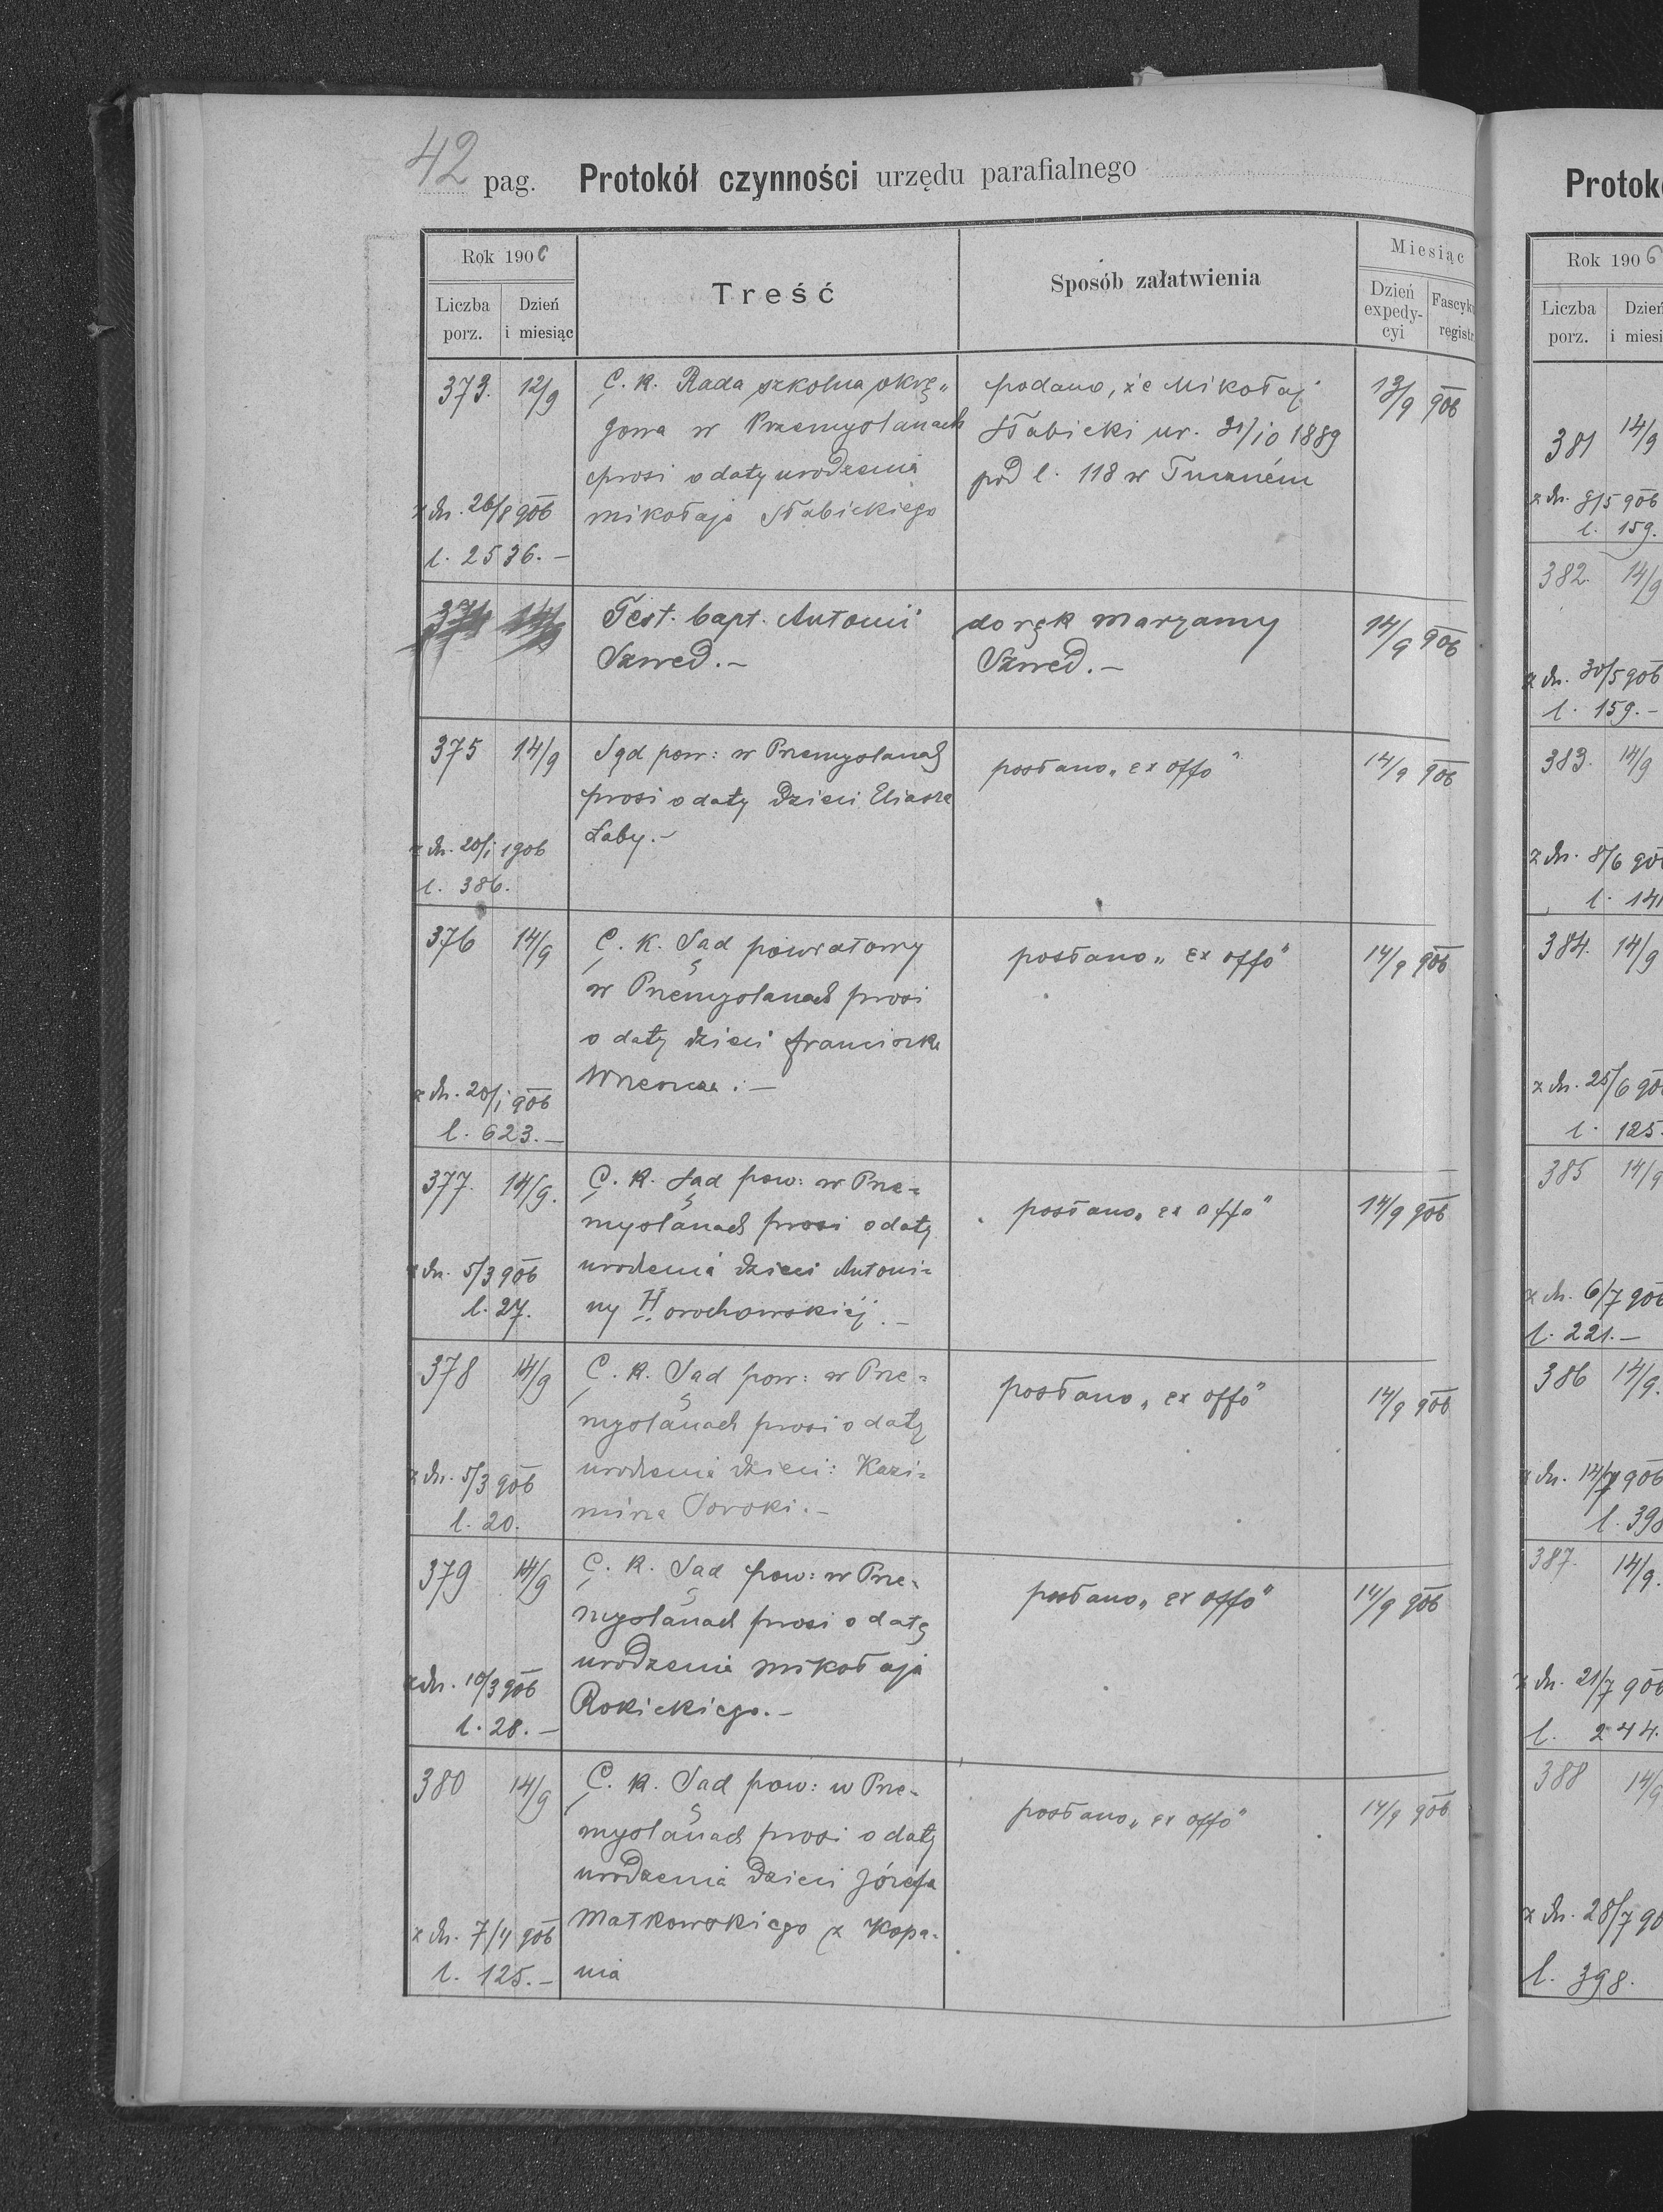 42 pag. Protokół czynności urzędu parafialnego
Rok 1906
Liczba porz.
Dzień i miesiąc
Treść
Sposób załatwienia
Miesiąc
Dzień expedycyi
Fascyk
registr
373. 12/9
z dn. 26/8 906
l. 2536.—
C. K. Rada szkolna okrę„
gowa w Przemyslanach
prosi o daty urodzenia
Mikołaja Słabickiego
podano, że Mikołaj
Słabicki ur. 31/10 1889
pod l. 118 w Tucznem
13/9 906
374 14/9
Test. bapt. Antonii
Szwed.—
do ręk Maryanny
Szwed.—
14/9 906
375 14/9
z dn. 20/1 1906
l. 386.
Sąd pow: w Przemyslanach
prosi o daty dzieci Eliasza
Łaby.—
posłano „ex offo"
14/9 906
376 14/9
z dn. 20/1 906
l. 623.—
C. K. Sąd powiatowy
w Przemyslanach prosi
o daty dzieci Franciszka
posłano „ex offo"
14/9 906
377. 14/9.
z dn. 5/3 906
l. 27.
C. K. Sąd pow: w Prze=
myslanach prosi o daty
urodzenia dzieci Antoni=
ny Horochowskiéj.—
posłano „ex offo"
14/9 906
378 14/9
z dn. 5/3 906
l. 20.
C. K. Sąd pow: w Prze=
myslanach prosi o datę
urodzenia dzieci: Kazi=
mirza Soroki.—
posłano „ex offo"
14/9 906
379 14/9
z dn. 10/3 906
l. 28.—
C. K. Sąd pow: w Prze=
myslanach prosi o datę
urodzenia Mikołaja
Rokickiego.—
posłano „ex offo"
14/9 906
380 14/9
z dn. 7/4 906
l. 125.—
C. K. Sąd pow: w Prze=
myslanach prosi o daty
urodzenia dzieci Józefa
Małkowskiego z Kopa=
nia
posłano „ex offo"
14/9 906
Protok
Rok 1906
Liczba porz.
Dzień
i miesi
381 14/9
z dn. 8/5 906
l. 159.
382. 14/9
z dn. 30/5 906
l. 159.—
383. 14/9
z dn. 8/6 906
l. 141
384. 14/9
z dn. 25/6 90
l. 125.
385 14/9
z dn. 6/7 906
l. 221.—
386 14/9.
z dn. 14/7 906
l. 398
387. 14/9.
z dn. 21/7 906
l. 244.
388 14/9
z dn. 28/7 90
l. 398.